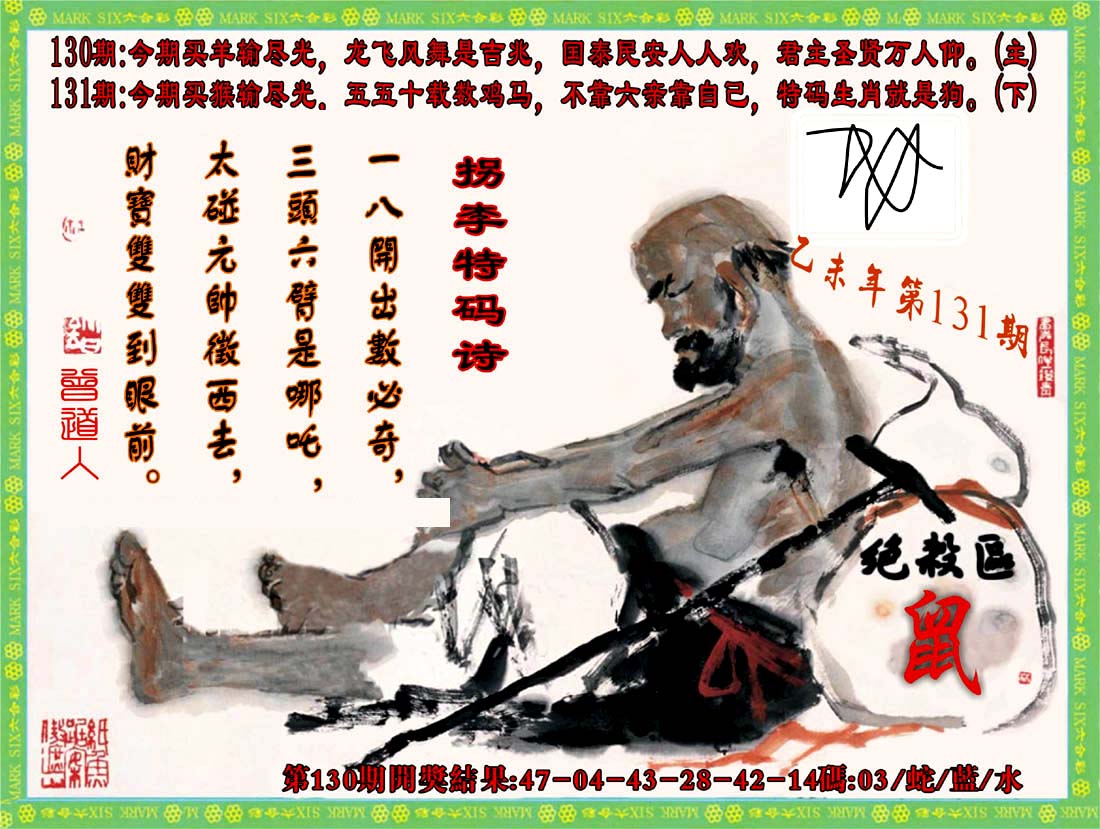 MARK SIX六合彩
130期:今期买羊输尽光，龙飞风舞是吉兆，国泰民安人人欢，君主圣贤万人仰。(主)
131期:今期买猴输尽光．五五十载数鸡马，不靠六亲靠自已，特码生肖就是狗。(下)
拐李特码诗
一八開出數必奇，
三頭六臂是哪吒，
太碰元帥徵西去，
財寶雙雙到眼前。
曾道人
乙未年第131期
绝殺區
鼠
第130期開獎結果:47-04-43-28-42-14碼:03/蛇/藍/水